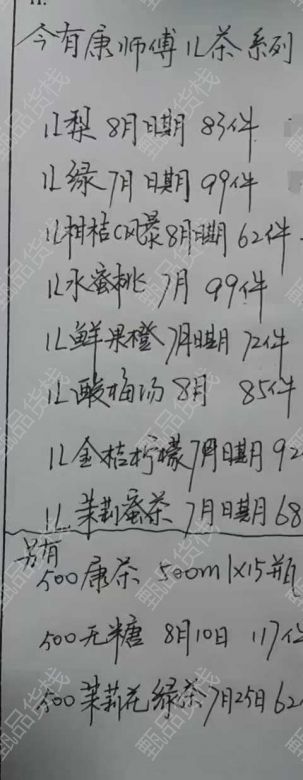 今有康师傅1L茶系列
1L梨 8月日期 83件
1L绿 7月日期 99件
1L柑桔C风暴8月日期 62件
1L水蜜桃 7月 99件
1L鲜果橙 7月日期 72件
1L酸梅汤 8月 85件
1L金桔柠檬7月日期92
1L 茉莉蜜茶 7月日期68
另有
500康茶 500ml×15瓶
500无糖 8月10日 117件
500茉莉花绿茶7月25日62
甄品货栈